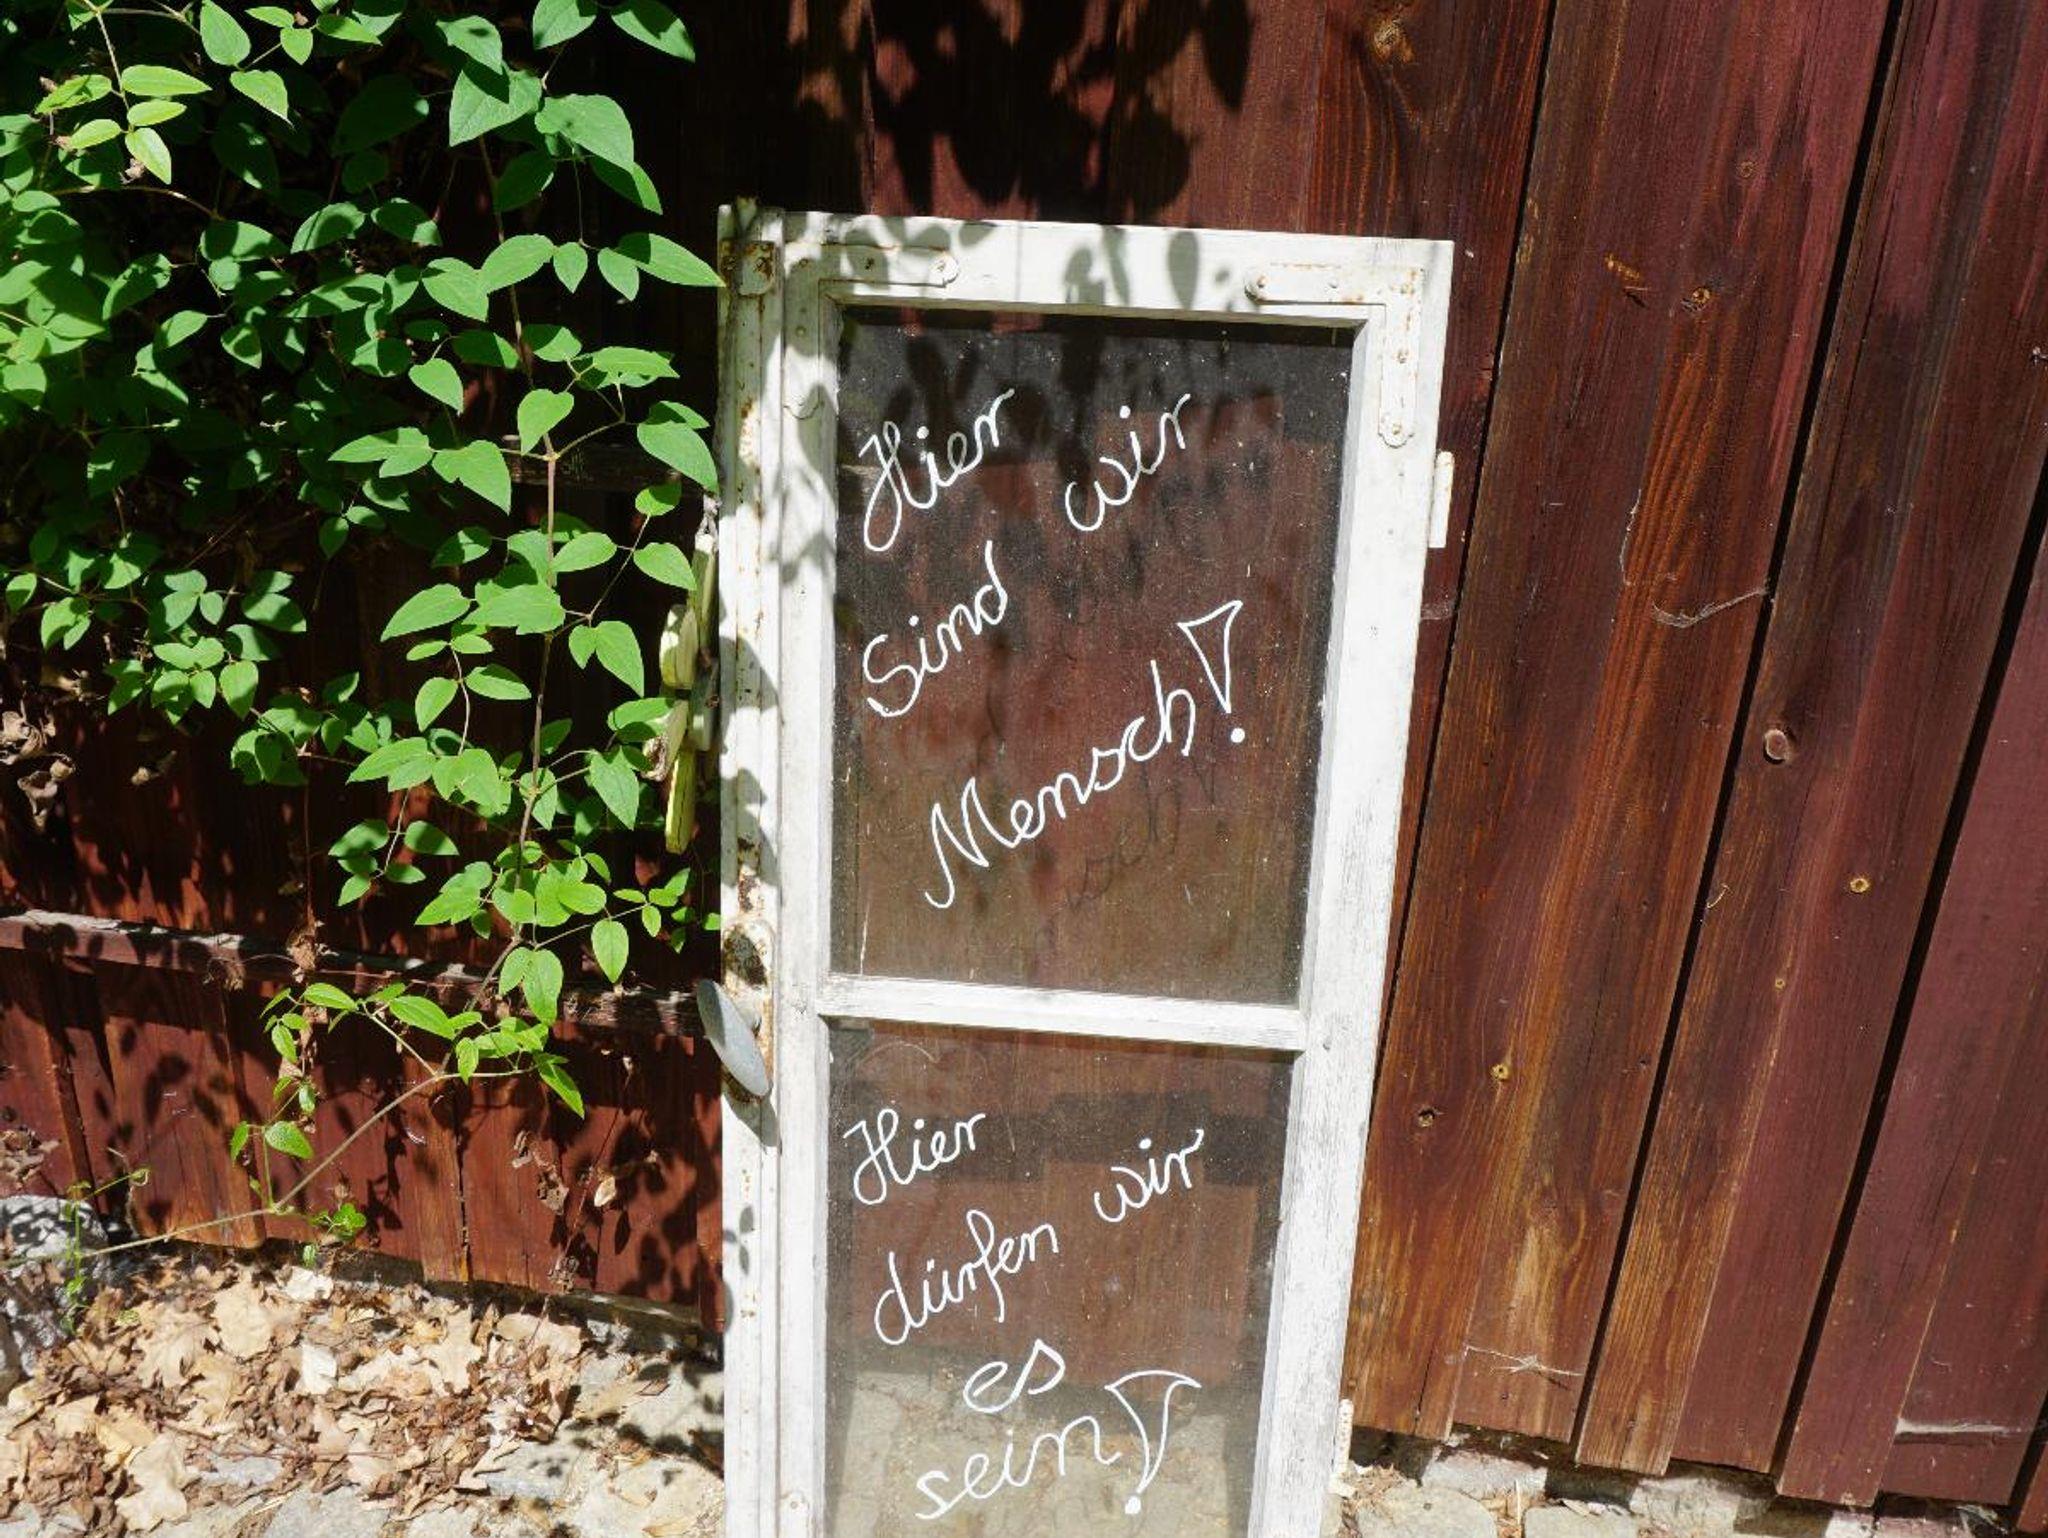 Hier wir
sind
Mensch!
Hier
dürfen wir
es
sein!